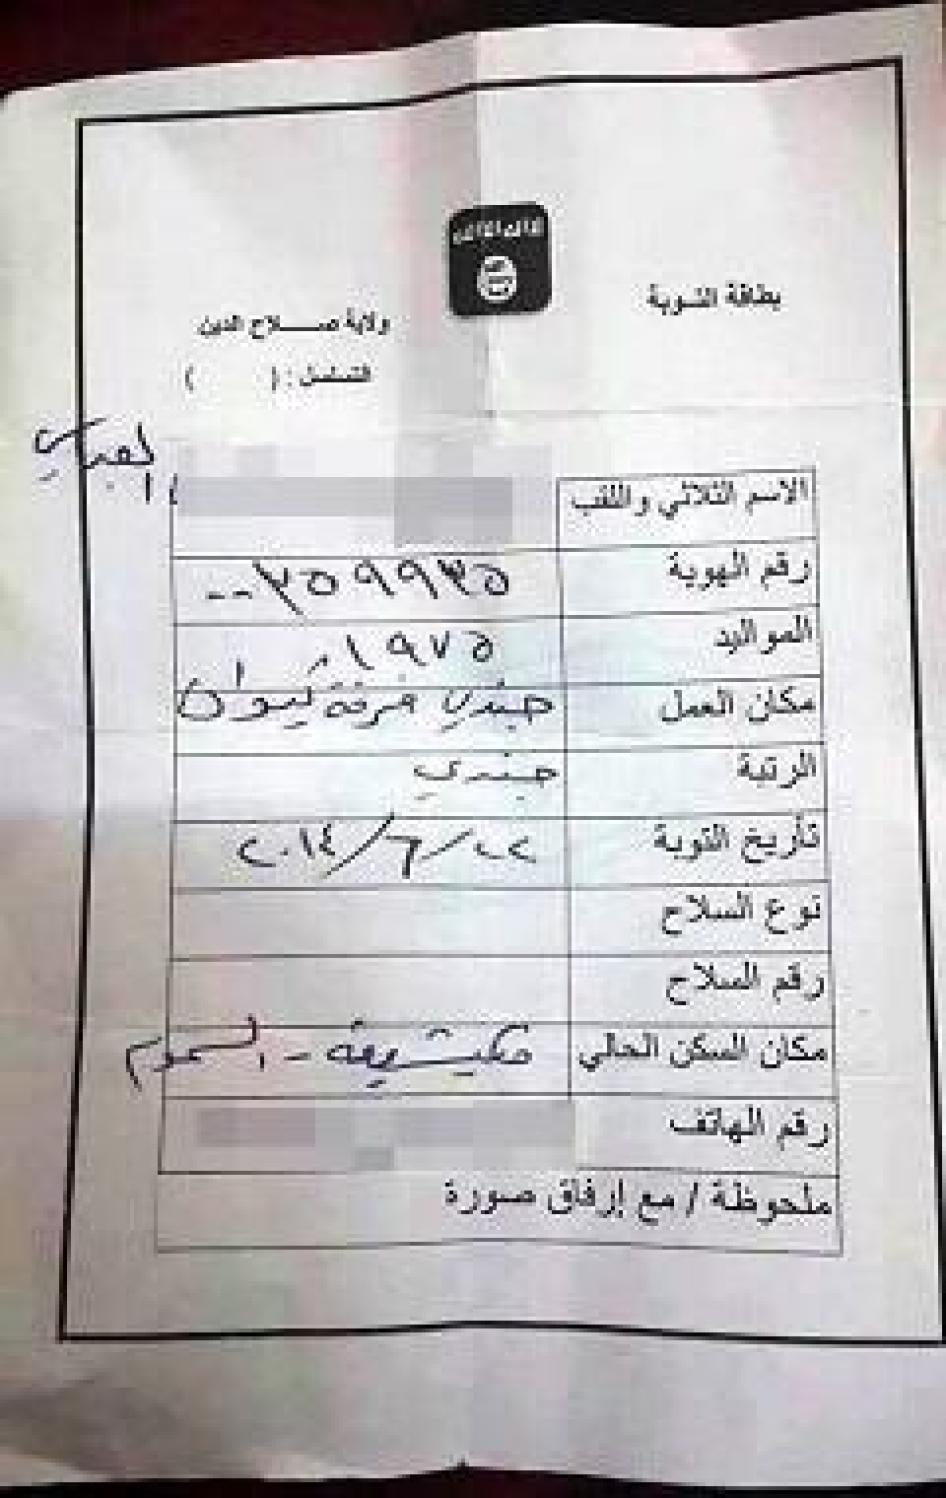 بطاقة التوبة
ولاية صـــلاح الدين
التسلسل : (        )
الاسم الثلاثي واللقب
رقم الهوية ٣٥٩٩٣٥
المواليد ١٩٧٥
مكان العمل جندي فرقة
الرتبة جندي
تأريخ التوبة ٢٢/٦/٢٠١٤
نوع السلاح
رقم السلاح
مكان السكن الحالي مكيشيفة -
رقم الهاتف
ملحوظة / مع إرفاق صورة